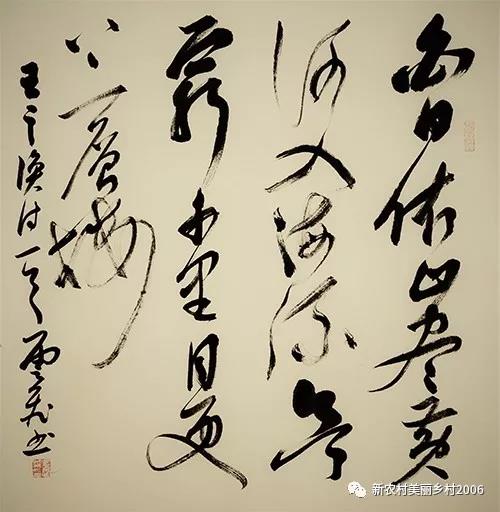 白日依山尽黄
河入海流欲
穷千里目更
上一層楼
王之涣诗一首 书
新农村美丽乡村2006